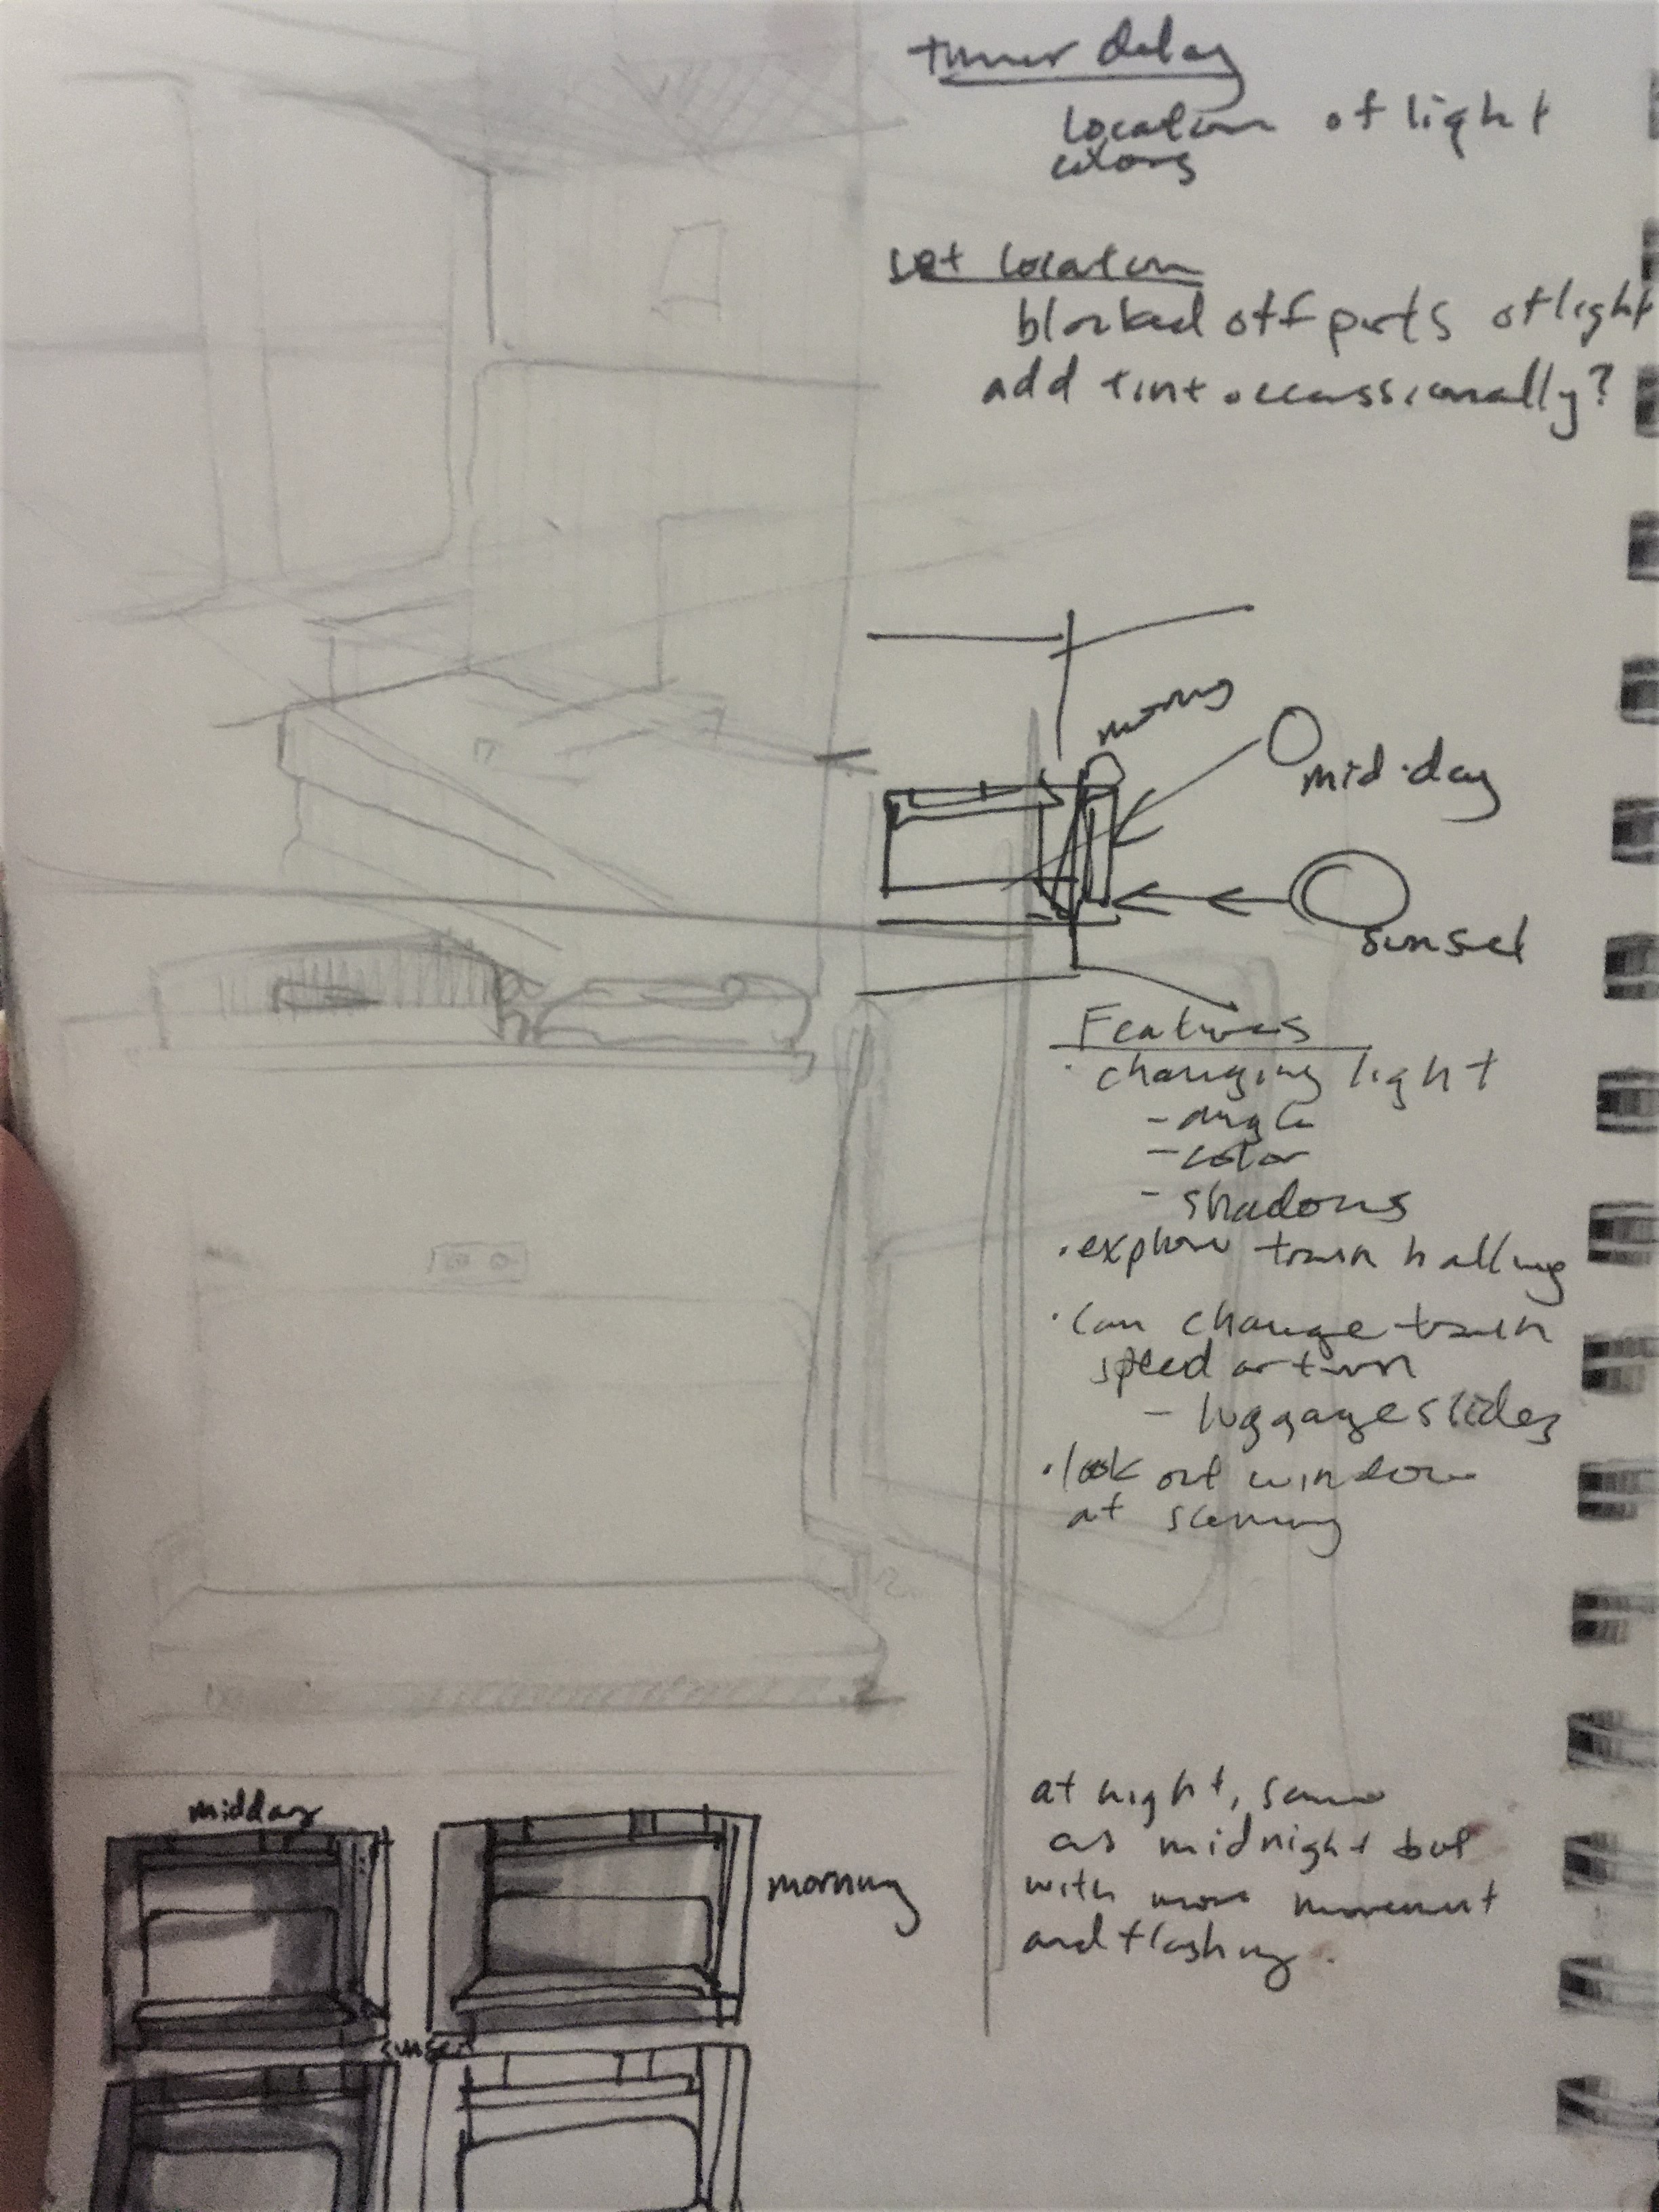 timer delay
location of light
colors
set location
blocked off parts of light
add tint occassionally?
morning
mid-day
sunset
Features
· changing light
- angle
- color
- shadows
· explore train hallway
· can change train
speed or turn
- luggage slides
· look out window
at scenery
midday
morning
sunset
at night, same
as midnight but
with more movement
and flashing.